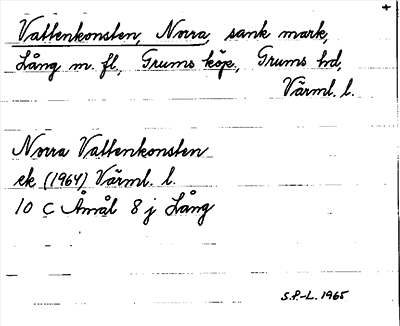 Vattenkonsten, Norra, sank mark,
Lång m. fl., Grums köp., Grums hd,
Värml. l.
Norra Vattenkonsten
ek (1964) Värml. l.
10 C Åmål 8 j Lång
S.P.-L. 1965